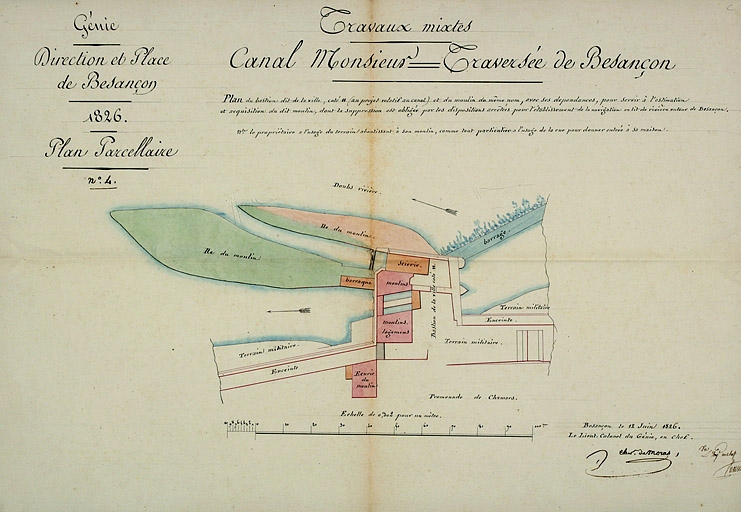 Génie
Direction et Place
de Besançon
1826.
Plan Parcellaire
n.° 4.
Travaux mixtes
Canal Monsieur = Traversée de Besançon
Plan du bastion dit de la ville, coté 11 (au projet relatif au canal) et du moulin du même nom, avec ses dépendances, pour servir à l'estimation
et acquisition du dit moulin, dont la suppression est obligée par les dispositions arrêtées pour l'établissement de la navigation en lit de rivière autour de Besançon.
le propriétaire a l'usage du terrain aboutissant à son moulin, comme tout particulier a l'usage de la rue pour donner entrée à sa maison.
Doubs rivière.
Ile du moulin
Ile du moulin
barrage.
Scierie.
baraque
moulin
Bastion de la ville coté 11.
moulins
logement
Terrain militaire
Enceinte.
Terrain militaire.
Terrain militaire.
Enceinte
Ecurie
du
moulin
Promenade de Chamars.
Echelle de pour un mètre.
Besançon le 12 Juin 1826.
Le Lieut. Colonel du Génie, en Chef.